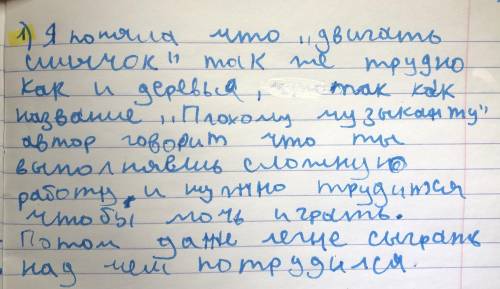 1) Я поняла что „двигать
смычок" так же трудно
как и деревья, так как
название „Плохому музыканту"
автор говорит что ты
выполняешь сложную
работу, и нужно трудится
чтобы мочь играть.
Потом даже легче сыграть
над чем потрудился.